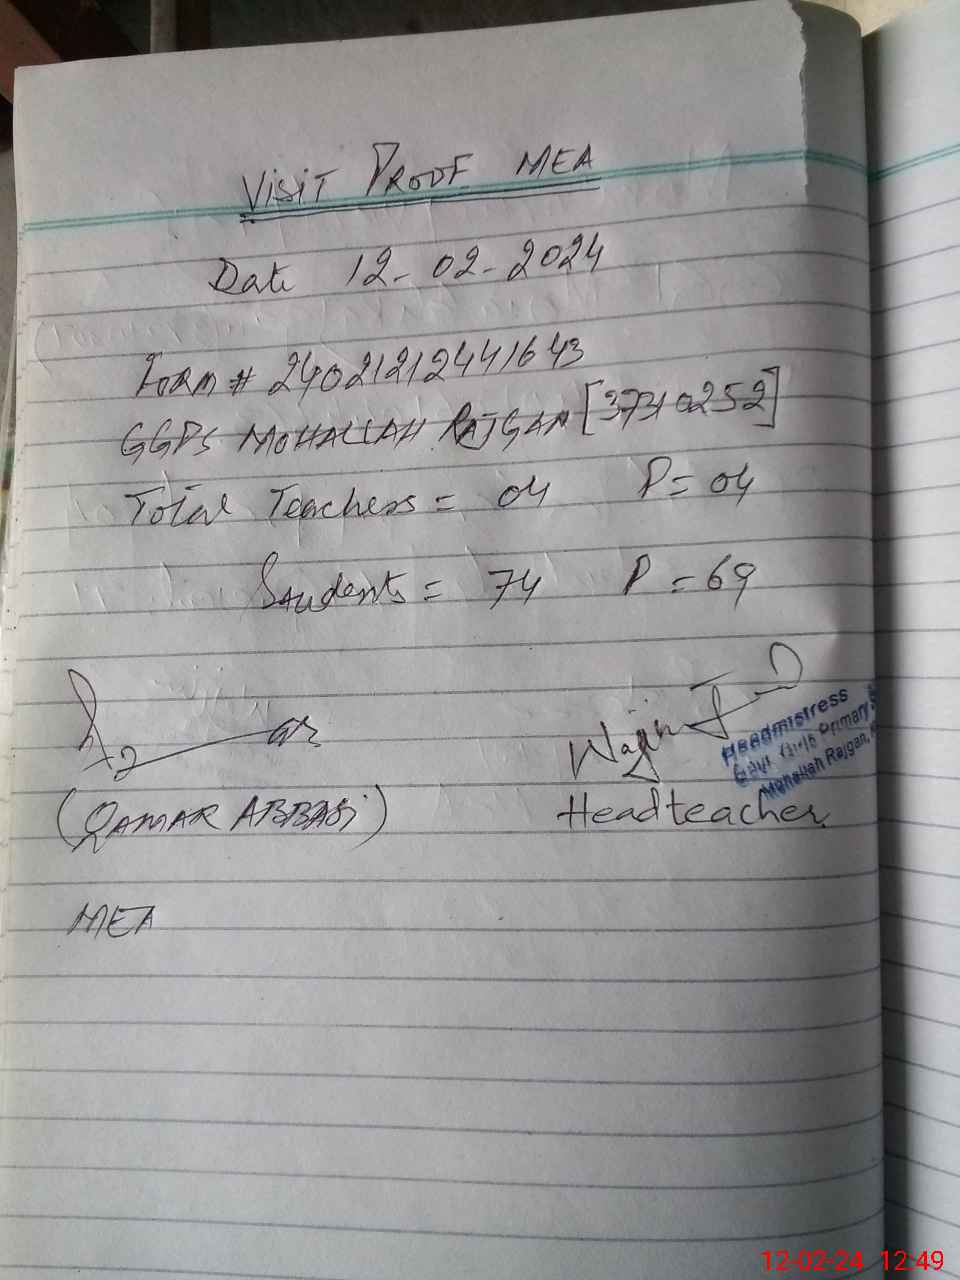 VISIT PROOF MEA
Date 12-02-2024
FORM # 24021212441643
GGPS MOHALLAH RAJGAN [37310252]
Total Teachers = 04 P = 04
Students = 74 P = 69
Headmistress
Govt Girls Primary S
Mohallah Rajgan,
(QAMAR ABBASI)
Headteacher
MEA
12-02-24 12:49